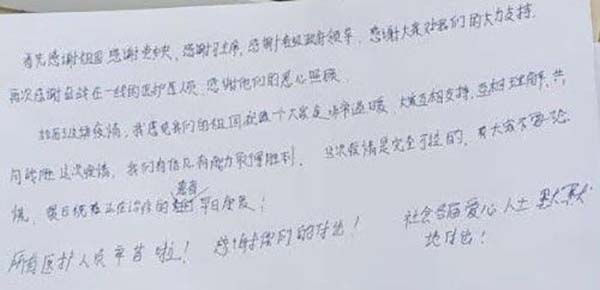 首先感谢祖国,感谢党中央,感谢习主席,感谢各级政府领导,感谢大家对我们的大力支持.
再次感谢奋战在一线的医护人员,感谢他们的悉心照顾.
疫情,我感觉我们的祖国就像一个大家庭非常温暖,大家互相支持,互相,共
同战胜这次疫情,我们有信心有能力取得胜利。这次疫情是完全可控的,
慌,最后祝愿正在治疗的患者早日康复!
所有医护人员辛苦啦! 感谢你们的付出! 社会各届爱心人士默默
地付出!